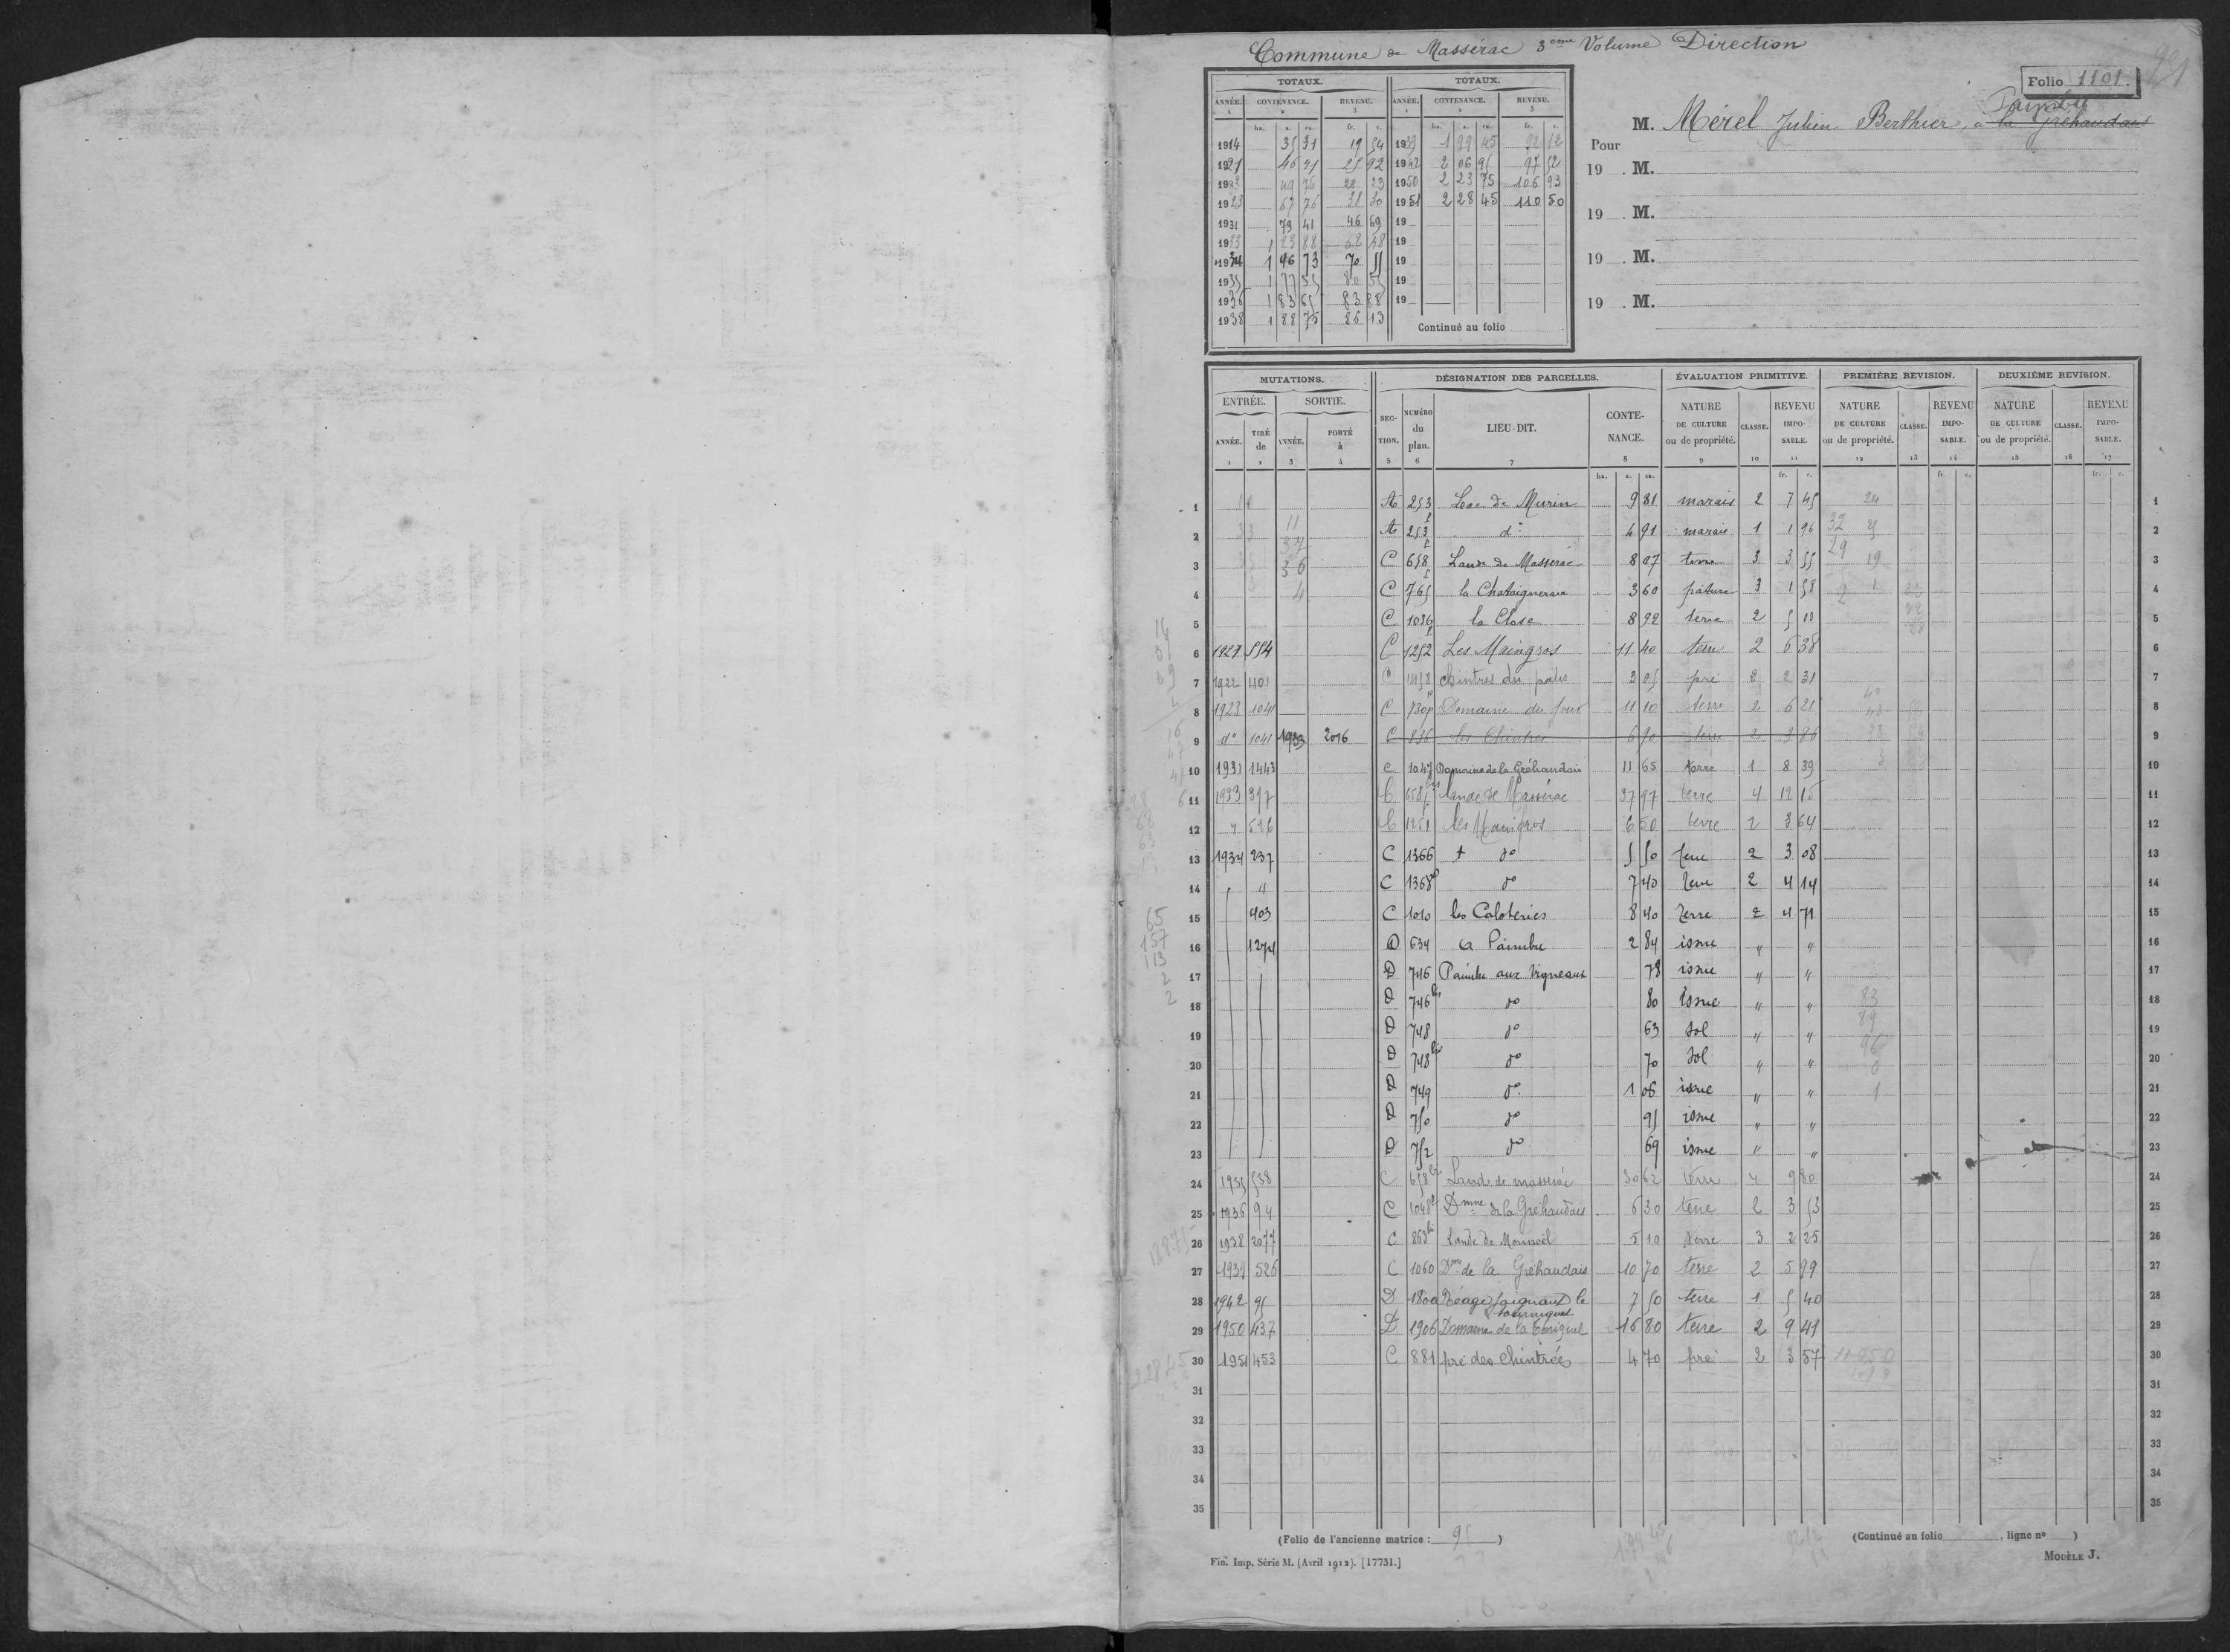 Commune de Massérac 3ème Volume Direction
Folio 1101.
TOTAUX. TOTAUX.
ANNÉE. CONTENANCE. REVENU. ANNÉE. CONTENANCE. REVENU.
1 2 3 1 2 3
ha. a. ca. fr. c. ha. a. ca. fr. c.
1914 35 31 19 54 1939 1 99 45 92 12
1921 46 71 25 92 1942 2 06 95 97 52
1923 49 76 28 23 1950 2 23 75 106 93
1923 67 76 38 30 1951 2 28 45 110 50
1931 79 41 46 69 19
1933 1 23 88 62 48 19
1934 1 46 73 70 55 19
1935 1 77 35 80 35 19
1936 1 83 65 83 88 19
1938 1 88 75 86 13 Continué au folio
Pour M. Mérel Julien Berthier, à la Gréhaudais Painbu
19 . M.
19 . M.
19 . M.
19 . M.
MUTATIONS. DÉSIGNATION DES PARCELLES. ÉVALUATION PRIMITIVE. PREMIÈRE REVISION. DEUXIÈME REVISION.
ENTRÉE. SORTIE.
ANNÉE. TIRÉ de ANNÉE. PORTÉ à SECTION. NUMÉRO du plan. LIEU-DIT. CONTENANCE. NATURE DE CULTURE ou de propriété. CLASSE. REVENU IMPOSABLE. NATURE DE CULTURE ou de propriété. CLASSE. REVENU IMPOSABLE. NATURE DE CULTURE ou de propriété. CLASSE. REVENU IMPOSABLE.
1 2 3 4 5 6 7 8 9 10 11 12 13 14 15 16 17
ha. a. ca. fr. c. fr. c. fr. c.
1 A 253 Lac de Murin 9 81 marais 2 7 45 1
2 A 253 d° 4 91 marais 1 1 96 2
3 C 658 Lande de Massérac 8 07 terre 3 3 55 3
4 C 765 la Chataigneraie 3 60 pâture 3 1 58 4
5 C 1036 la Close 8 92 terre 2 5 00 5
6 1927 554 C 1252 Les Maingros 11 40 terre 2 6 38 6
7 1922 1101 C 1158 Chintres du patis 3 05 pré 2 2 31 7
8 1923 1041 C 730p Domaine du four 11 10 terre 2 6 21 8
9 d° 1041 1933 2016 C 836 les Chintres 6 90 terre 2 3 86 9
10 1931 1443 C 1047 Domaine de la Gréhaudais 11 65 terre 1 8 39 10
11 1933 397 C 658 lande de Massérac 37 97 terre 4 12 15 11
12 " 526 C 1251 les Maingros 6 50 terre 2 3 64 12
13 1934 237 C 1366 d° 5 50 terre 2 3 08 13
14 " C 1368p d° 7 40 terre 2 4 14 14
15 403 C 1010 les Caloteries 8 40 terre 2 4 71 15
16 1274 D 634 a Painbu 2 84 issue " " 16
17 D 746 Painbu aux Vigneaux 78 issue " " 17
18 D 746 bis d° 80 issue " " 18
19 D 748 d° 63 sol " " 19
20 D 748 bis d° 70 sol " " 20
21 D 749 d° 1 06 issue " " 21
22 D 750 d° 95 issue " " 22
23 D 752 d° 69 issue " " 23
24 1935 538 C 658 Lande de massérac 30 62 terre 4 9 80 24
25 1936 94 C 1048p Dmne de la Gréhaudais 6 30 terre 2 3 53 25
26 1938 2077 C 863 Lande de Mounoël 5 10 terre 3 2 25 26
27 1939 526 C 1060 Dne de la Gréhaudais 10 70 terre 2 5 99 27
28 1942 95 D 1800 Réage joignant le tourniquet 7 50 terre 1 5 40 28
29 1950 437 D 1906 Domaine de la 16 80 terre 2 9 41 29
30 1951 453 C 881 pré des Chintrées 4 70 pré 2 3 57 30
31 31
32 32
33 33
34 34
35 35
(Folio de l'ancienne matrice : 95 ) (Continué au folio , ligne n° )
Fin. Imp. Série M. (Avril 1912). [17731.] MODÈLE J.